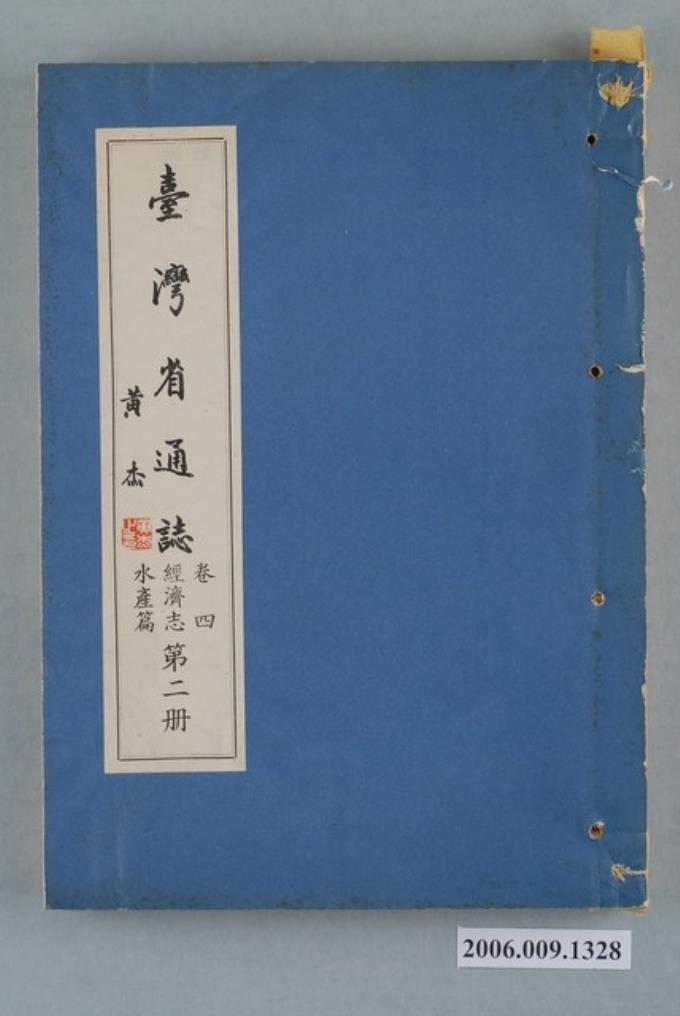 臺灣省通誌
黃杰
卷四
經濟志
水產篇
第二册
2006.009.1328